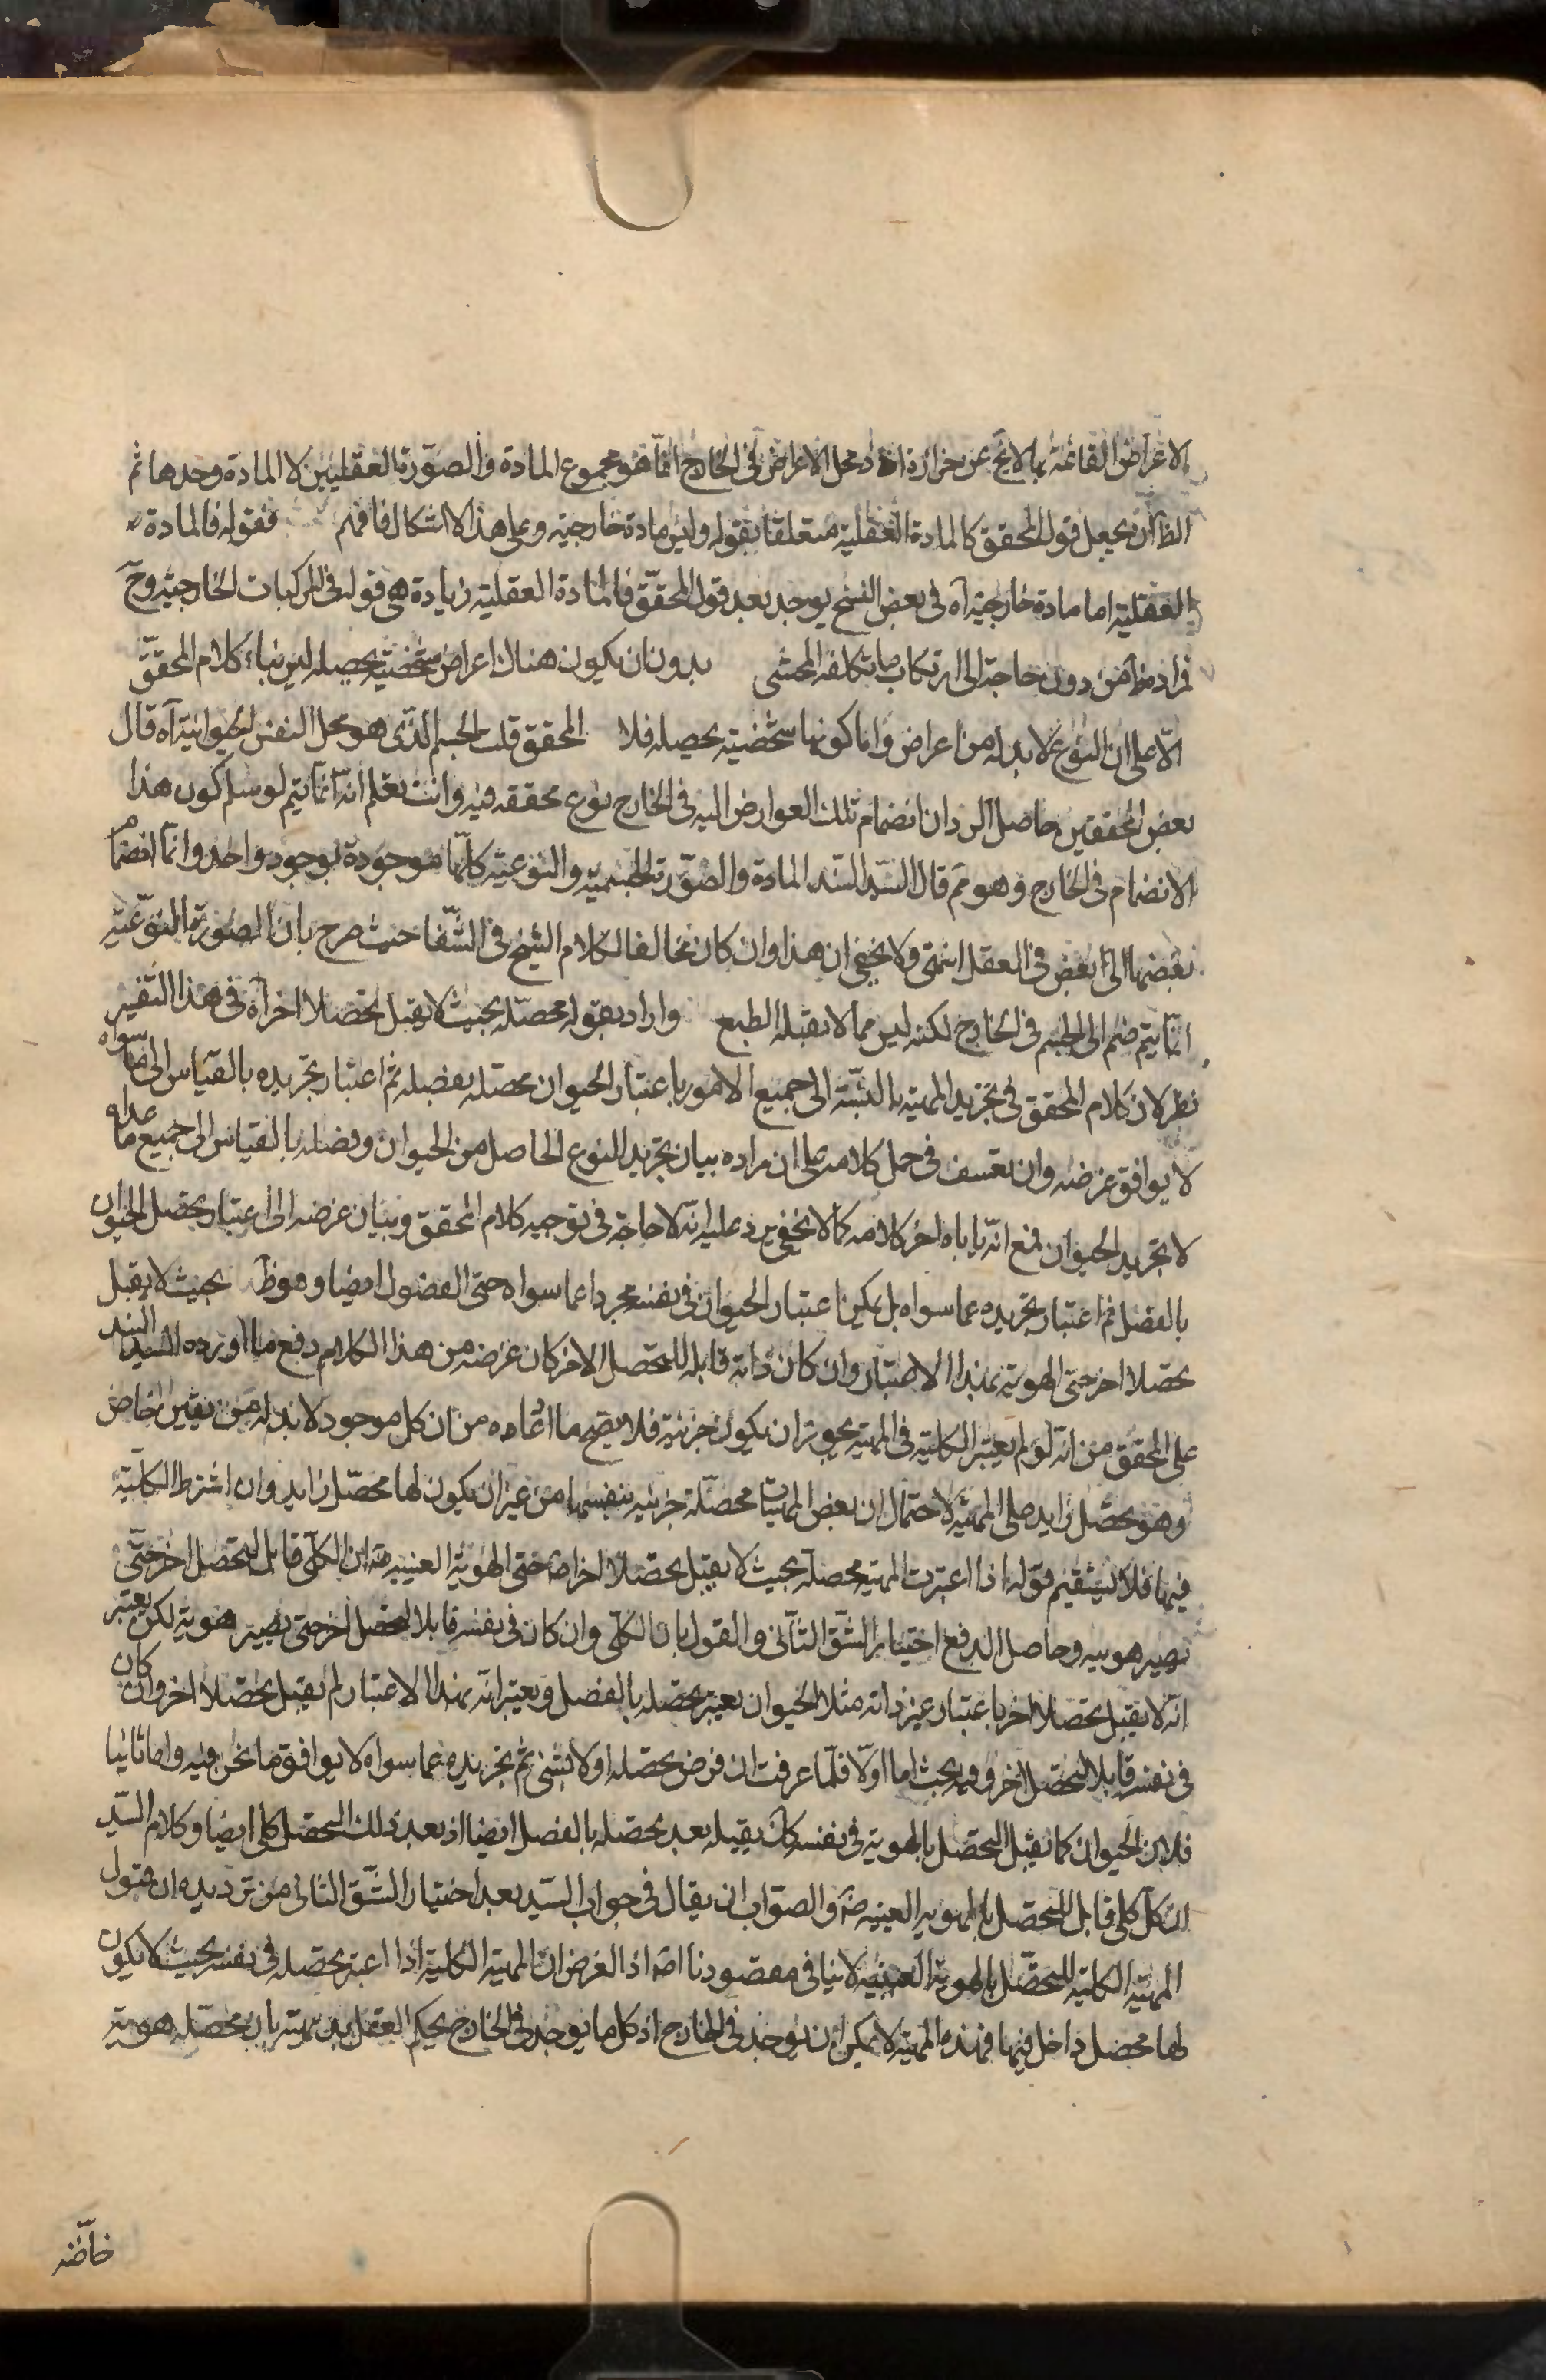 الاعراض القائمة بها لا يخ عن حزازة اذ محل الاعراض فى الخارج انما هو مجموع المادة والصورة العقليين لا المادة وحدها ثم
الظ ان يجعل قول المحقق كالمادة العقلية متعلقا بقوله وليس مادة خارجية وعلى هذا لا اشكال فافهم فقوله فالمادة
العقلية اما مادة خارجية آه فى بعض النسخ يوجد بعد قول المحقق فالمادة العقلية زيادة هى قوله فى المركبات الخارجية وح
فمراده ظ من دون حاجة الى ارتكاب ما تكلفه المحشى بدون ان يكون هناك اعراض شخصية يحصله ليس بناء كلام المحقق
الا على ان النوع لا بد له من اعراض واما كونها شخصية يحصله فلا المحقق قلت الجسم الذى هو محل النفس الحيوانية آه قال
بعض المحققين حاصل الرد ان انضمام تلك العوارض اليه فى الخارج نوع محققه فيه وانت تعلم انه انما يتم لو سلم كون هذا
الانضمام فى الخارج وهو مم قال السيد السند المادة والصورة الجسمية والنوعية كلها موجودة بوجود واحد وانما انضمام
بعضها الى بعض فى العقل انتهى ولا يخفى ان هذا وان كان مخالفا لكلام الشيخ فى الشفا حيث صرح بان الصورة النوعية
انما يتم ضم الى الجسم فى الخارج لكنه ليس مما لا يقبله الطبع واراد بقوله محصله بحيث لا يقبل تحصلا اخر آه فى هذا التفسير
نظر لان كلام المحقق فى تجريد المهية بالنسبة الى جميع الامور باعتبار الحيوان محصله بفصله ثم اعتبار تجريده بالقياس الى ما سواه
لا يوافق غرضه وان تعسف فى حمل كلامه على ان مراده بيان تجريد النوع الحاصل من الحيوان وفصله بالقياس الى جميع ما عداه
لا تجريد الحيوان فمع انه ياباه اخر كلامه كما لا يخفى يرد عليه انه لا حاجة فى توجيه كلام المحقق وبيان غرضه الى اعتبار تحصل الحيوان
بالفصل ثم اعتبار تجريده عما سواه بل يكفى اعتبار الحيوان فى نفسه مجردا عما سواه حتى الفصول ايضا وهو ظ بحيث لا يقبل
تحصلا اخر حتى الهوية بهذا الاعتبار وان كان ذاته قابله للتحصل الاخر كان غرضه من هذا الكلام دفع ما اورده السيد السند
على المحقق من انه لو لم يعتبر الكلية فى المهية يجوز ان يكون جزئية فلا يصح ما ادعاه من ان كل موجود لا بد له من تعين خاص
وهو تحصل زايد على المهية لاحتمال ان بعض المهيات محصلة جزئية بنفسها من غير ان يكون لها محصل زايد وان اشترط الكلية
فيها فلا يستقيم قوله اذا اعتبرت المهية محصلة بحيث لا يقبل تحصلا اخر اصه حتى الهوية العينية ضه ان الكلى قابل لتحصل اخر حتى
تصير هويه وحاصل الدفع اختيار الشق الثانى والقول بان الكلى وان كان فى نفسه قابلا لتحصل اخر حتى يصير هوية لكن يعتبر
انه لا يقبل تحصلا اخر باعتبار غير ذاته مثلا الحيوان يعتبر تحصله بالفصل ويعتبر انه بهذا الاعتبار لم يقبل تحصلا اخر وان كان
فى نفسه قابلا لتحصل اخر وفيه بحث اما اولا فلما عرفت ان فرض تحصله اولا بشئ ثم تجريده عما سواه لا يوافق ما نحن فيه واما ثانيا
فلان الحيوان كما يقبل التحصل بالهوية فى نفسه كان يقبله بعد تحصله بالفصل ايضا اذ بعد ذلك التحصل كلى ايضا وكلام السيد
ان كل كلى قابل للتحصل بالهويه العينيه ضه والصواب ان يقال فى جواب السيد بعد اختيار الشق الثانى من ترديده ان قبول
المهية الكلية للتحصل بالهوية العينية لا ينافى مقصودنا اصه اذ الغرض ان المهية الكلية اذا اعتبر تحصله فى نفسه بحيث لا يكون
لها محصل داخل فيها فهذه المهية لا يمكن ان يوجد فى الخارج اذ كل ما يوجد فى الخارج يحكم العقل بديهية بان محصله هوية
خاصة